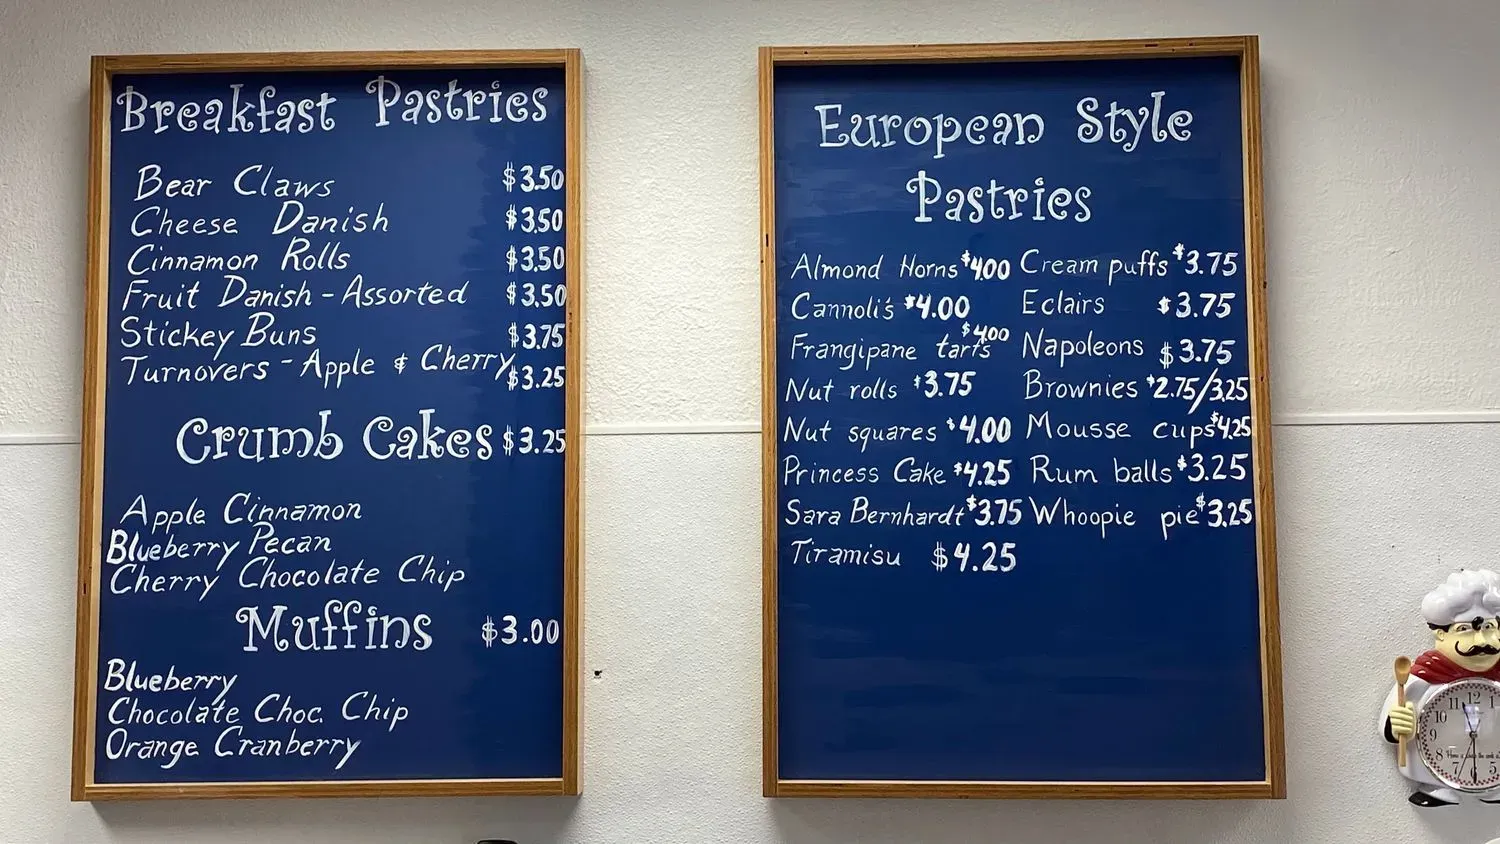 Breakfast Pastries
Bear Claws $3.50
Cheese Danish $3.50
Cinnamon Rolls $3.50
Fruit Danish - Assorted $3.50
Stickey Buns $3.75
Turnovers - Apple & Cherry $3.25
Crumb Cakes $3.25
Apple Cinnamon
Blueberry Pecan
Cherry Chocolate Chip
Muffins $3.00
Blueberry
Chocolate Choc. Chip
Orange Cranberry
European Style
Pastries
Almond Horns $4.00 Cream puffs $3.75
Cannoli's $4.00 Eclairs $3.75
Frangipane tarts $4.00 Napoleons $3.75
Nut rolls $3.75 Brownies $2.75/3.25
Nut squares $4.00 Mousse cups $4.25
Princess Cake $4.25 Rum balls $3.25
Sara Bernhardt $3.75 Whoopie pie $3.25
Tiramisu $4.25
11 12 1
10
9
8
7 6 5